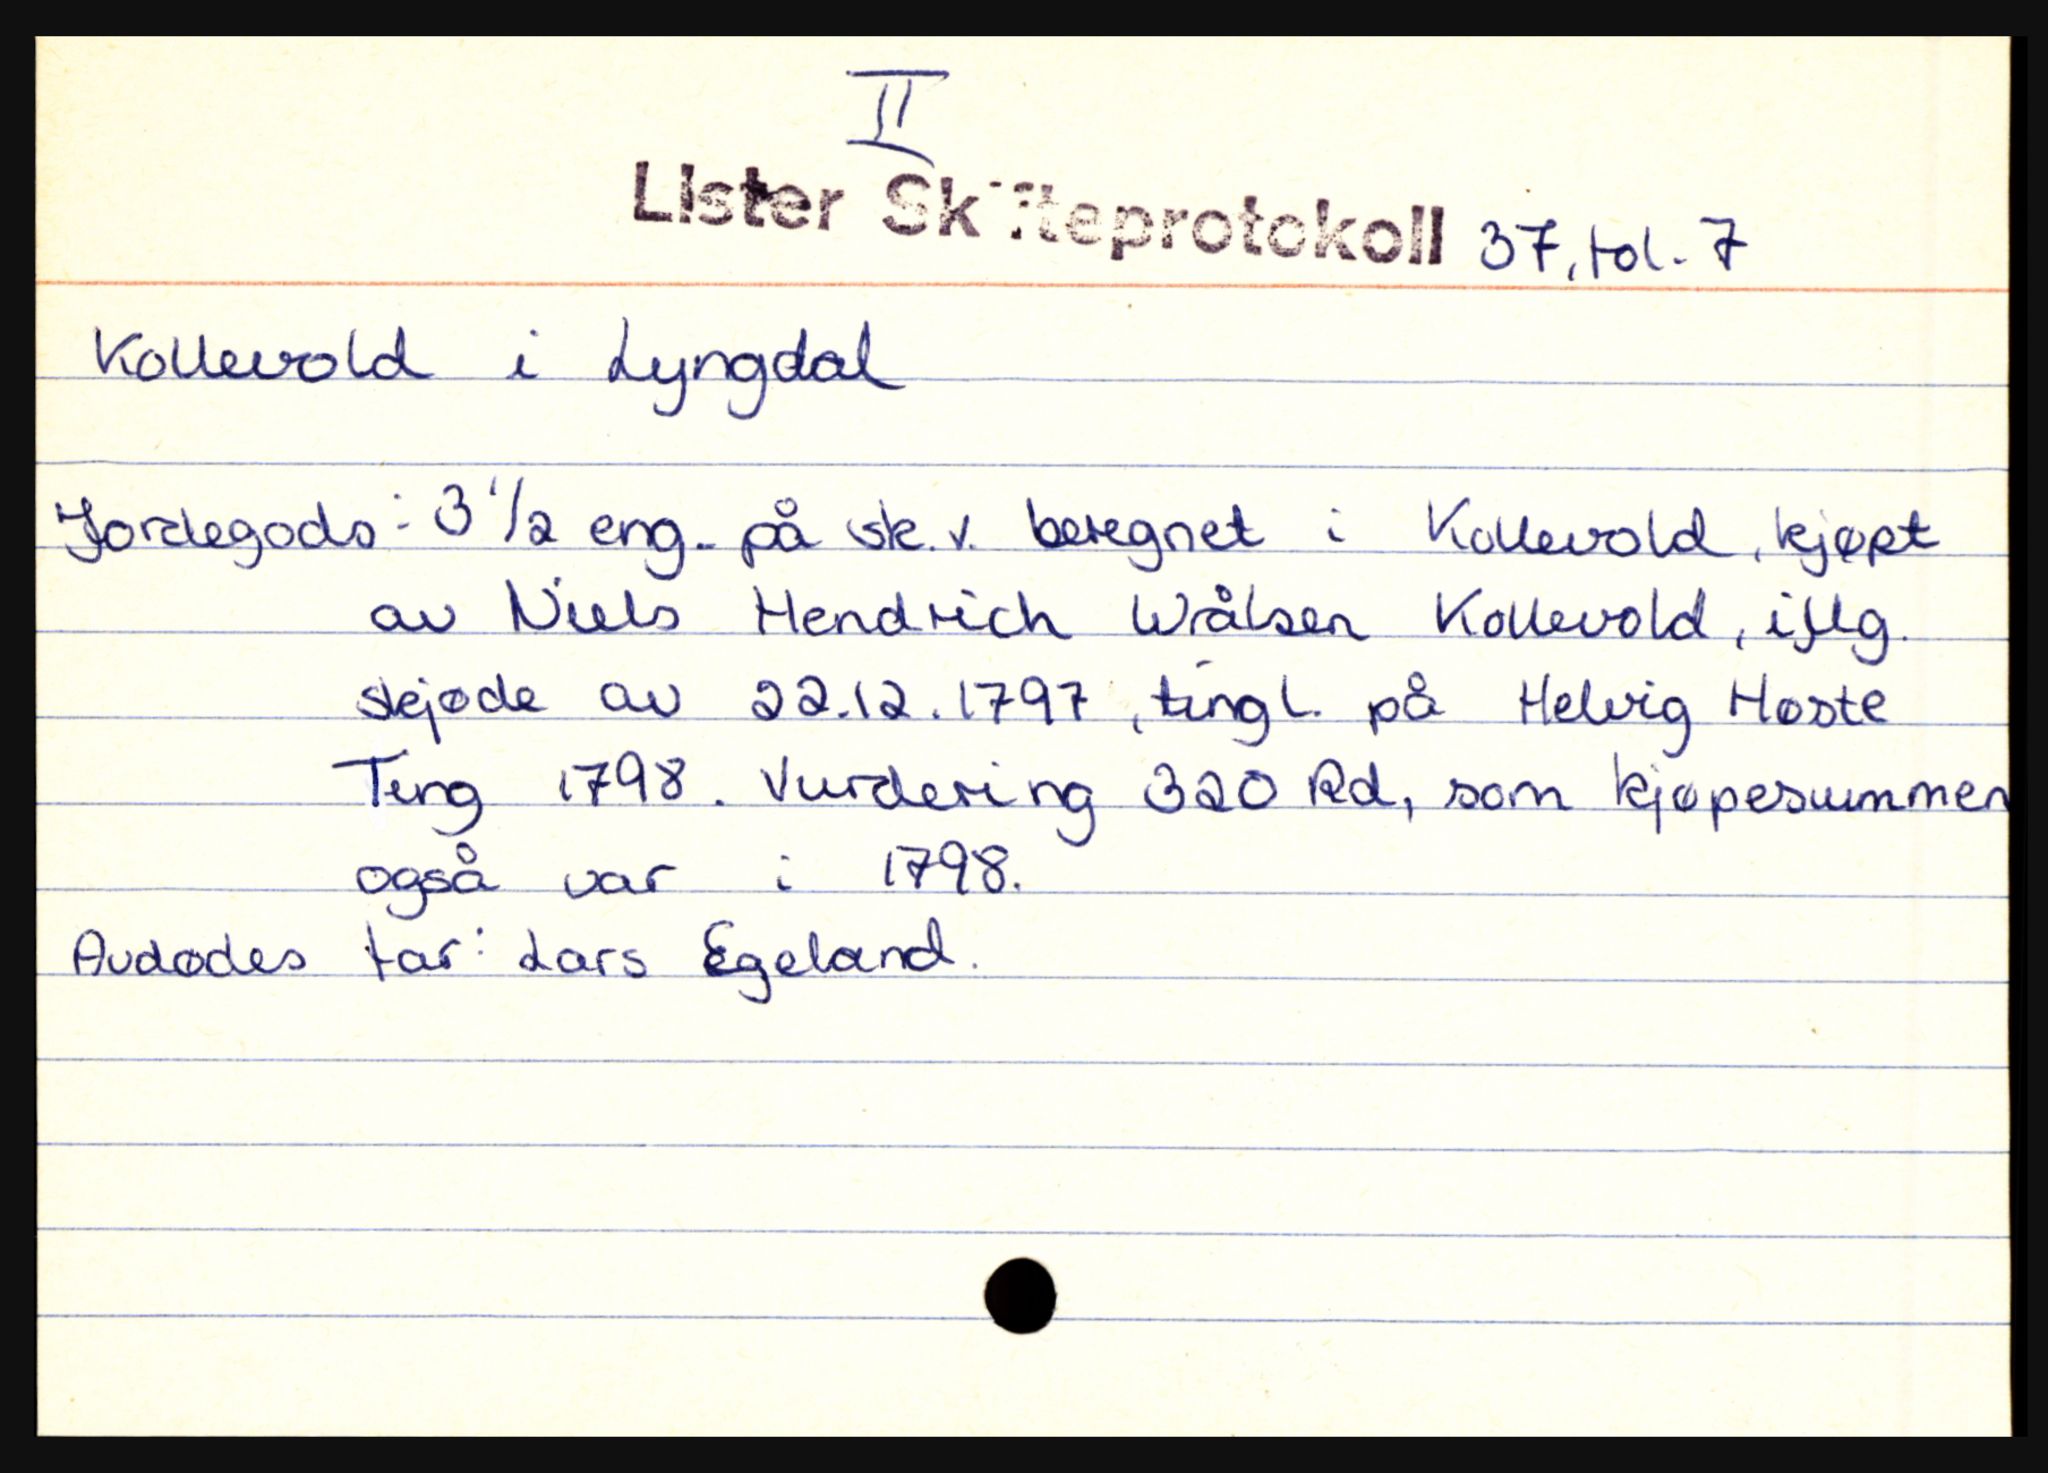 II
Lister Skifteprotokoll 37, fol. 7
Kollevold i Lyngdal
Jordegods: 3 1/2 eng. på sk.v. beregnet i Kollevold, kjøpt
av Niels Hendrich Wrålsen Kollevold, iflg.
skjøde av 22.12.1797, tingl. på Helvig Høste
Ting 1798. Vurdering 320 Rd, som kjøpesummen
også var i 1798.
Avdødes far: Lars Egeland.